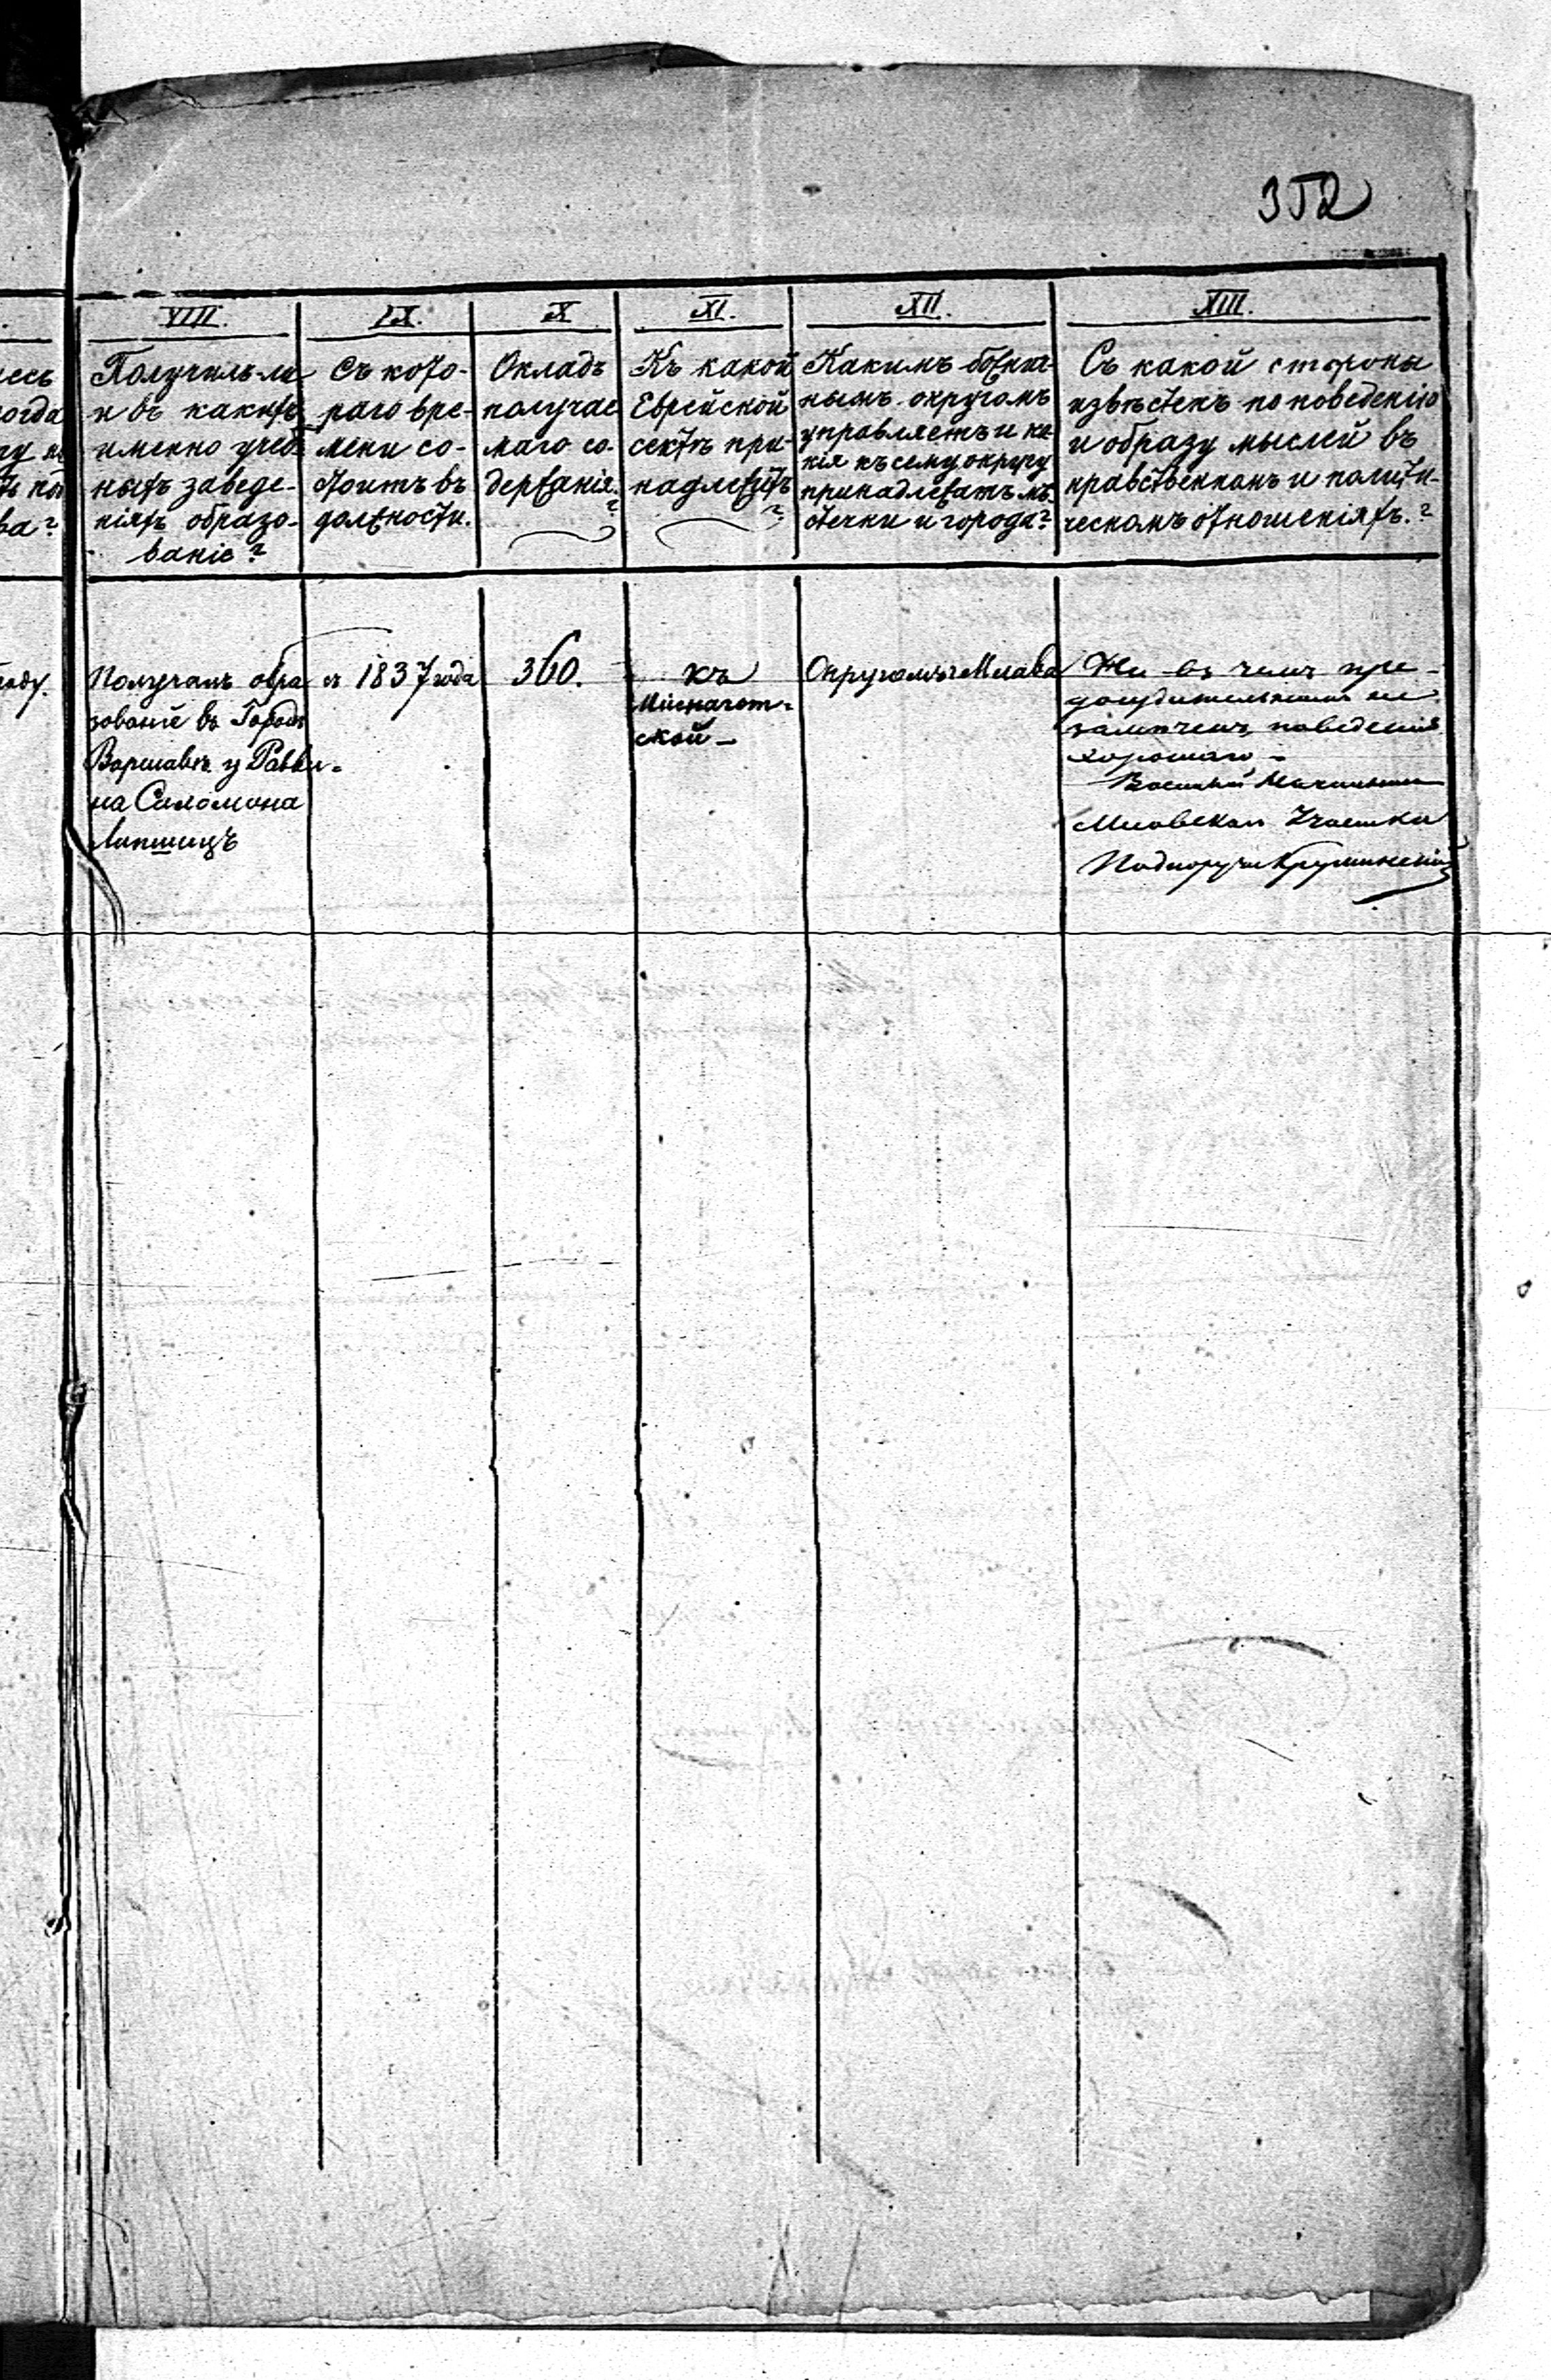 352
VIII.
Получилъ-ли
и въ какихъ
именно учеб-
ныхъ заведе-
нiяхъ образо-
ванiе?
IX.
Съ кото-
раго вре-
мени со-
стоитъ въ
должности.
X
Окладъ
получае
маго со-
держанiя.
?
XI.
Къ какой
Еврейской
сектѣ при-
надлежитъ
?
XII.
Какимъ божнич-
нымъ округомъ
управляетъ и ка-
кiя къ сему округу
принадлежатъ мѣ-
стечки и города?
XIII.
Съ какой стороны
извѣстенъ по поведенiю
и образу мыслей въ
нравственномъ и полити-
ческомъ отношенiяхъ.?
Получалъ обра
зованiе въ Городѣ
Варшавѣ у Равви-
на Саломона
Липшицъ
съ 1837 года
360.
къ
ской
Округомъ Млава
Ни въ чемъ пре-
досудительномъ не
замѣченъ, поведенiя
хорошаго
Военный Начальникъ
Млавскаго Участка
Подпоручи